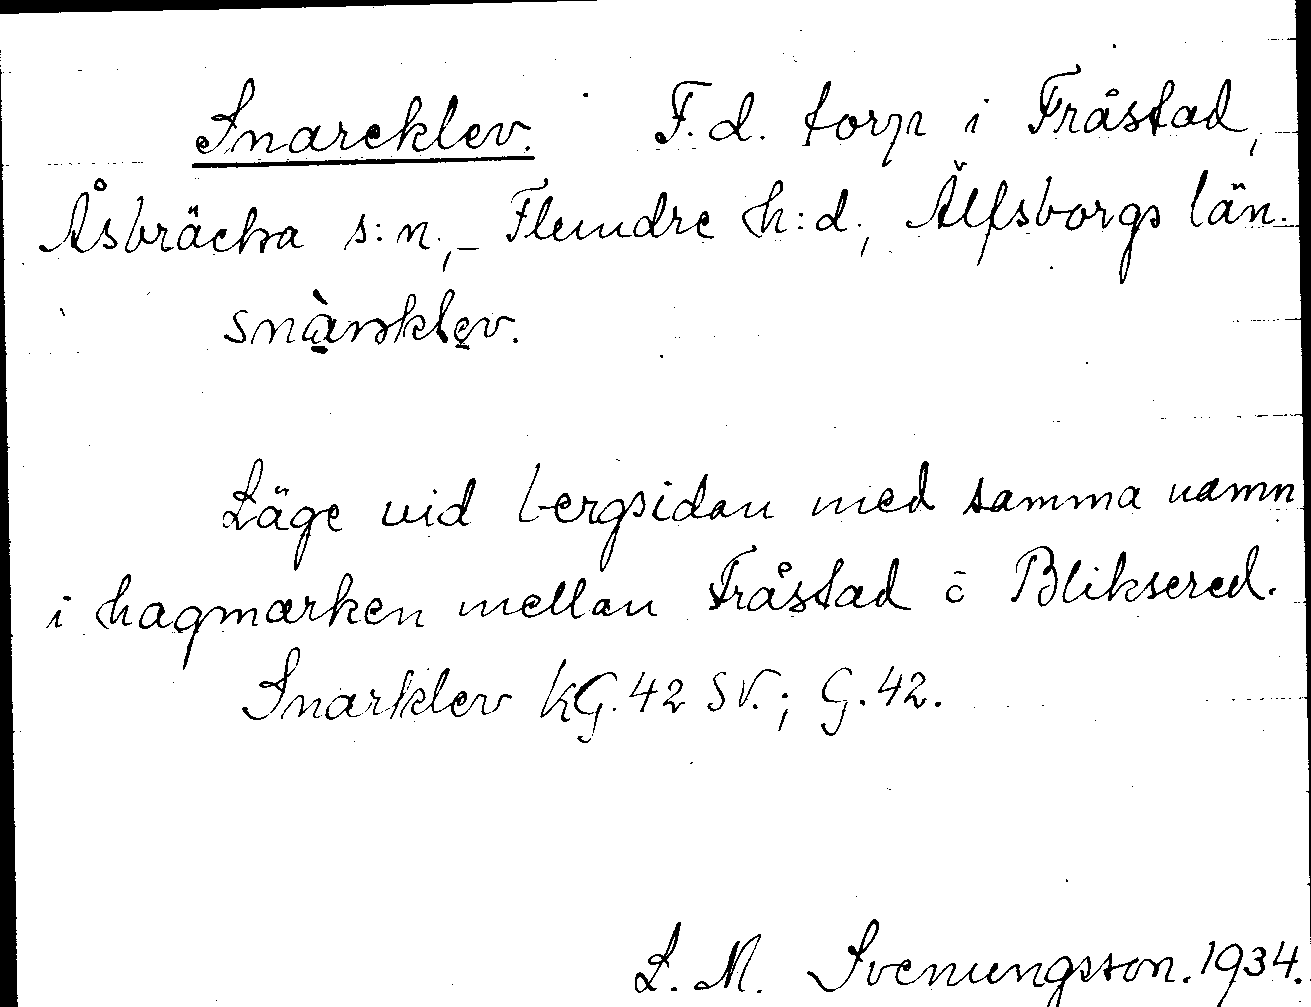 Snareklev. F.d. torp i Fråstad,
Åsbräcka s:n, Flundre h:d, Älfsborgs län.
Läge vid bergsidan med samma namn
i hagmarken mellan Fråstad o Bliksered.
Snarklev KG.42 SV.; G.42.
L. M. Svenungsson. 1934.